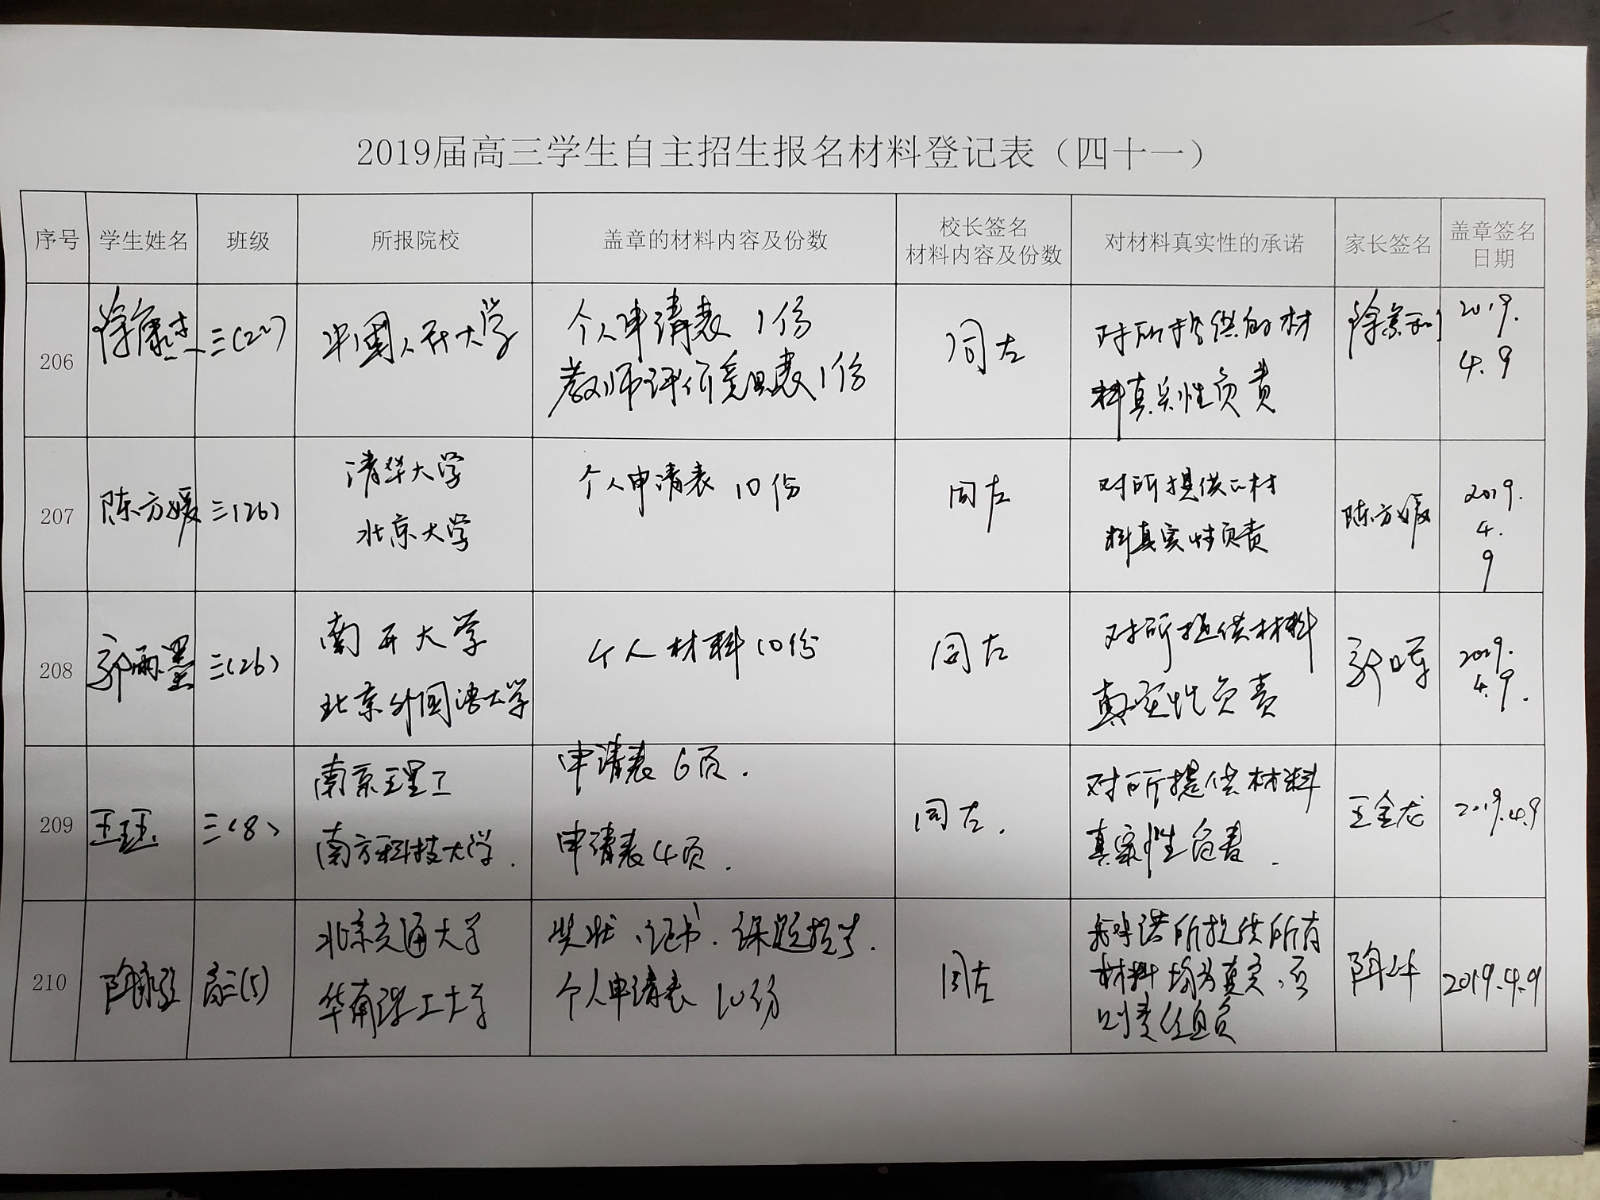 2019届高三学生自主招生报名材料登记表（四十一）
序号 学生姓名 班级 所报院校 盖章的材料内容及份数 校长签名 材料内容及份数 对材料真实性的承诺 家长签名 盖章签名 日期
206 徐康杰 三(22) 中国人民大学 个人申请表 1份 同左 对所提供的材 2019.
教师评价意见表1份 料真实性负责 4.9
207 陈方媛 三(26) 清华大学 个人申请表 10份 同左 对所提供的材 陈方媛 2019.
北京大学 料真实性负责 4.
9
208 郭雨墨 三(26) 南开大学 个人材料10份 同左 对所提供材料 2019.
北京外国语大学 真实性负责 4.9.
209 王珏 三(8) 南京理工 申请表6页. 同左. 对所提供材料 王金龙 2019.4.9
南方科技大学. 申请表4页. 真实性负责.
210 高三(5) 北京交通大学 奖状、证书、课题报告. 同左 我承诺所提供所有 2019.4.9
华南理工大学 个人申请表 10份 材料均为真实,否
则责任自负